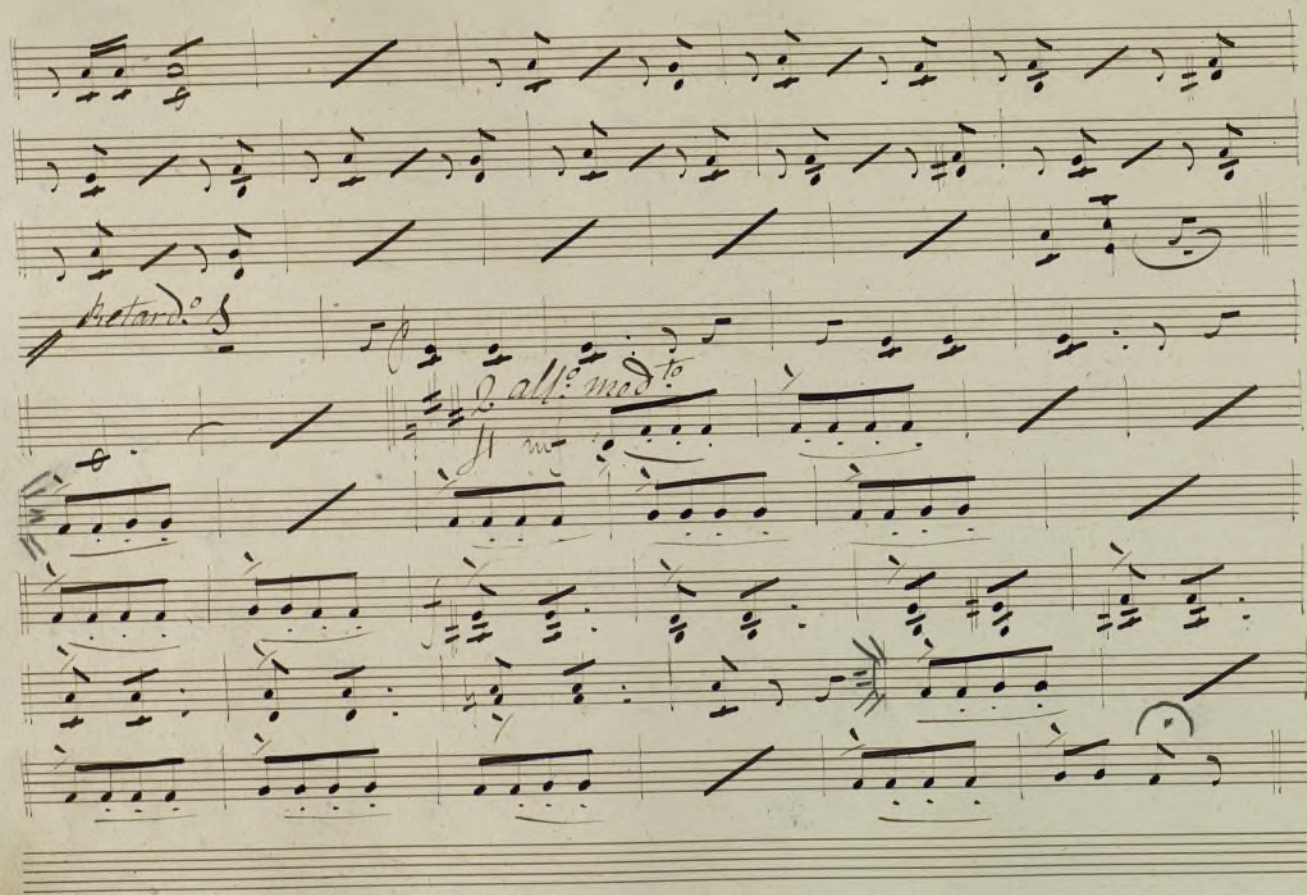 Retard.º
p
2 all.º mod.to
4 mf
f